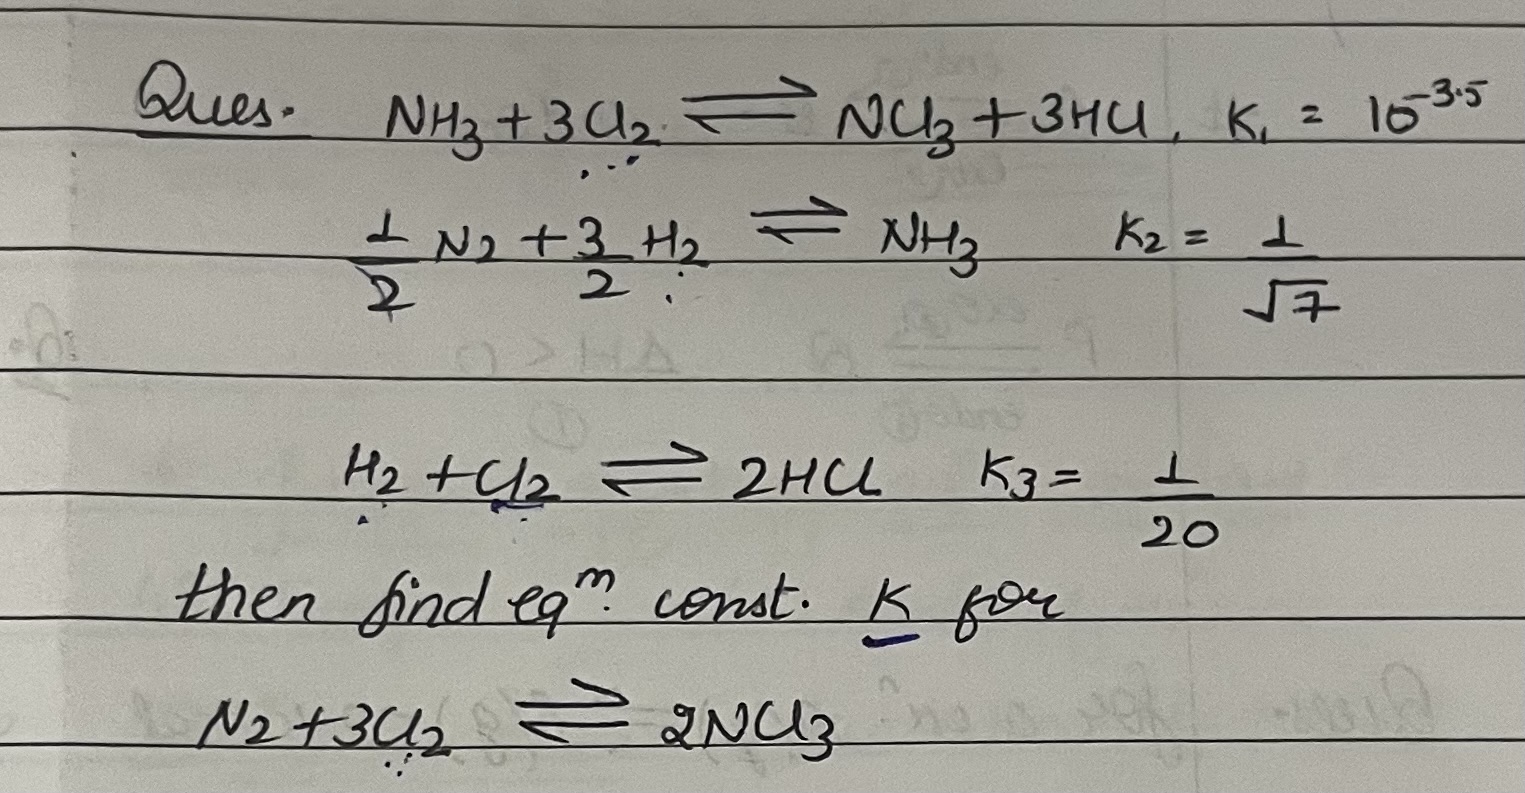 Ques. NH3 + 3Cl2 ⇌ NCl3 + 3HCl, K1 = 10^-3.5
1/2 N2 + 3/2 H2 ⇌ NH3 K2 = 1/√7
H2 + Cl2 ⇌ 2HCl K3 = 1/20
then find eq^m. const. K for
N2 + 3Cl2 ⇌ 2NCl3